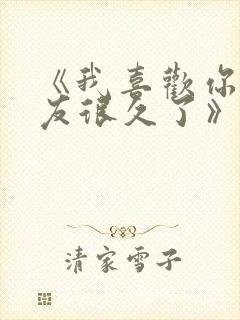 《我喜歡你
友很久了》
清家雪子